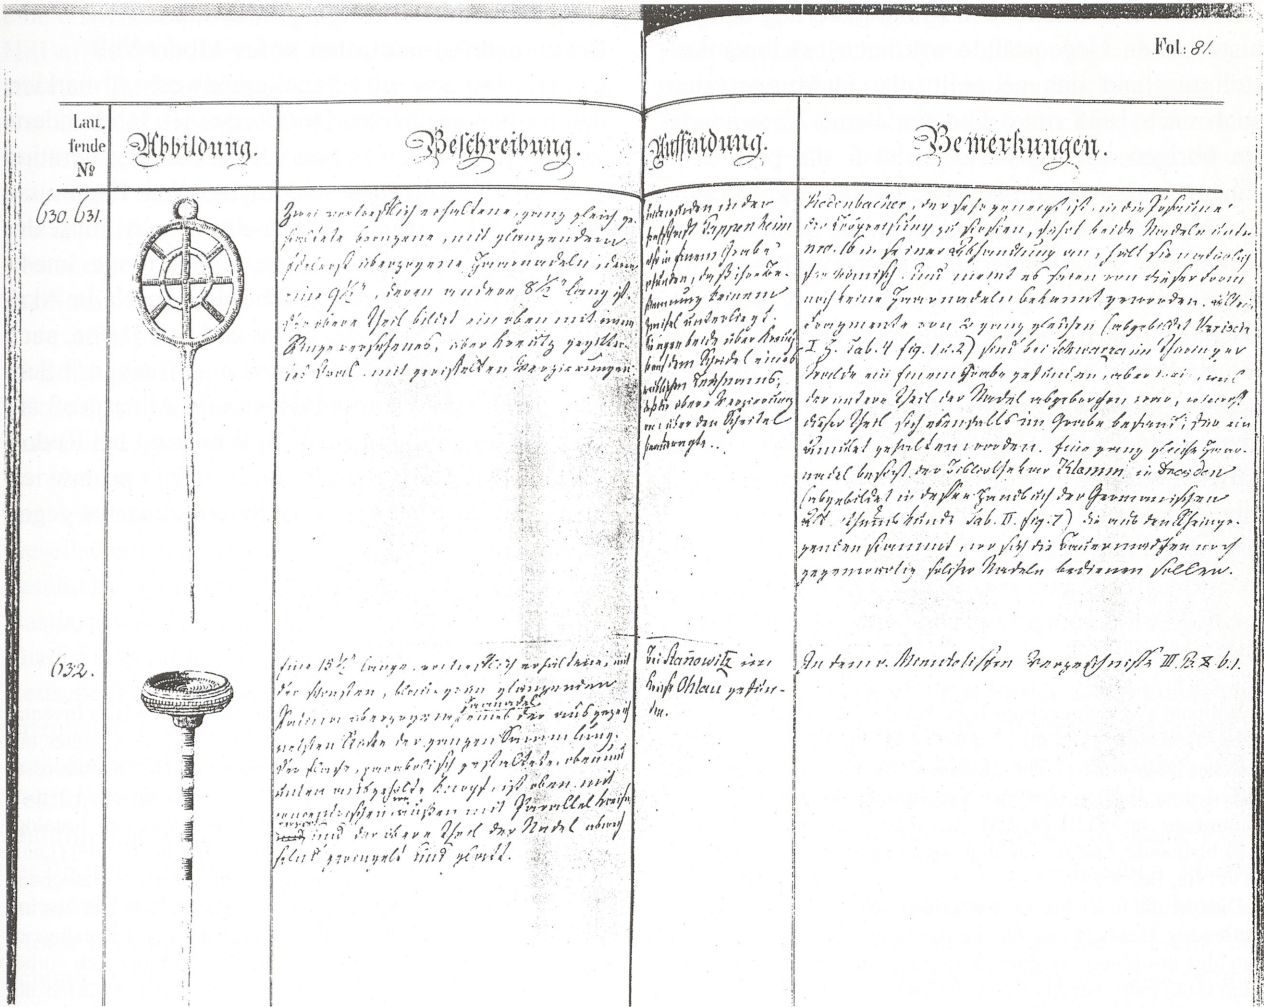 Fol: 81.
Lau.
fende
No
Abbildung.
Beschreibung.
Auffindung.
Bemerkungen.
630. 631.
Zwei vortrefflich erhaltene, ganz gleich ge-
bronzene, mit glänzendem
überzogene Haarnadeln, deren
eine 9½", deren andere 8½" lang ist.
Der obere Theil bildet ein oben mit einem
Ringe versehenes, über Kreutz
Oval mit gereifelten Verzierungen.
wurden in der
Pappenheim
in einem Grabe
gefunden, daß ihre Be-
stimmung keinem
Zweifel unterliegt.
beide über Kreuz
auf dem Schedel eines
weiblichen Leichnams,
obere Verzierung
über den Scheitel
Redenbacher, der sehr geneigt ist, in die
zu, führt beide Nadeln unter
nro. 16 in seiner Abhandlung an, hält sie natürlich
für römisch, und meint es seien von dieser Form
noch keine Haarnadeln bekannt geworden. Allein
Fragmente von 2 ganz gleichen (abgebildet Variscia
I. H. Tab. 4 fig. 1 u. 2) sind bei Schwarza im Thüringer
Walde in einem Grabe gefunden, aber, weil
der untere Theil der Nadel abgebrochen war,
dieser Theil sich ebenfalls im Grabe befand, für ein
Amulet gehalten worden. Eine ganz gleiche Haar-
nadel besitzt der Bibliothekar Klemm in Dresden
(abgebildet in dessen Handbuch der Germanischen
Alterthumskunde Tab. II. fig. 7) die aus den Rheinge-
genden stammt, wo sich die Bauermädchen noch
gegenwärtig solcher Nadeln bedienen sollen.
632.
Eine 15½" lange, vortrefflich erhaltene, mit
der schönsten, blau-grün glänzenden
Patina überzogene Haarnadel, eines der ausgezeich-
netsten Stücke der ganzen Sammlung.
Der flache, parabolisch gestaltete, oben und
unten ausgehölte Knopf, ist oben mit
concentrischen, außen mit Parallel Kreisen
und der obere Theil der Nadel abwech-
selnd geringelt und glatt.
Bei Stanowitz im
Kreise Ohlau gefun-
den.
In dem v. Minutolischen Verzeichnisse III. B. b. 1.